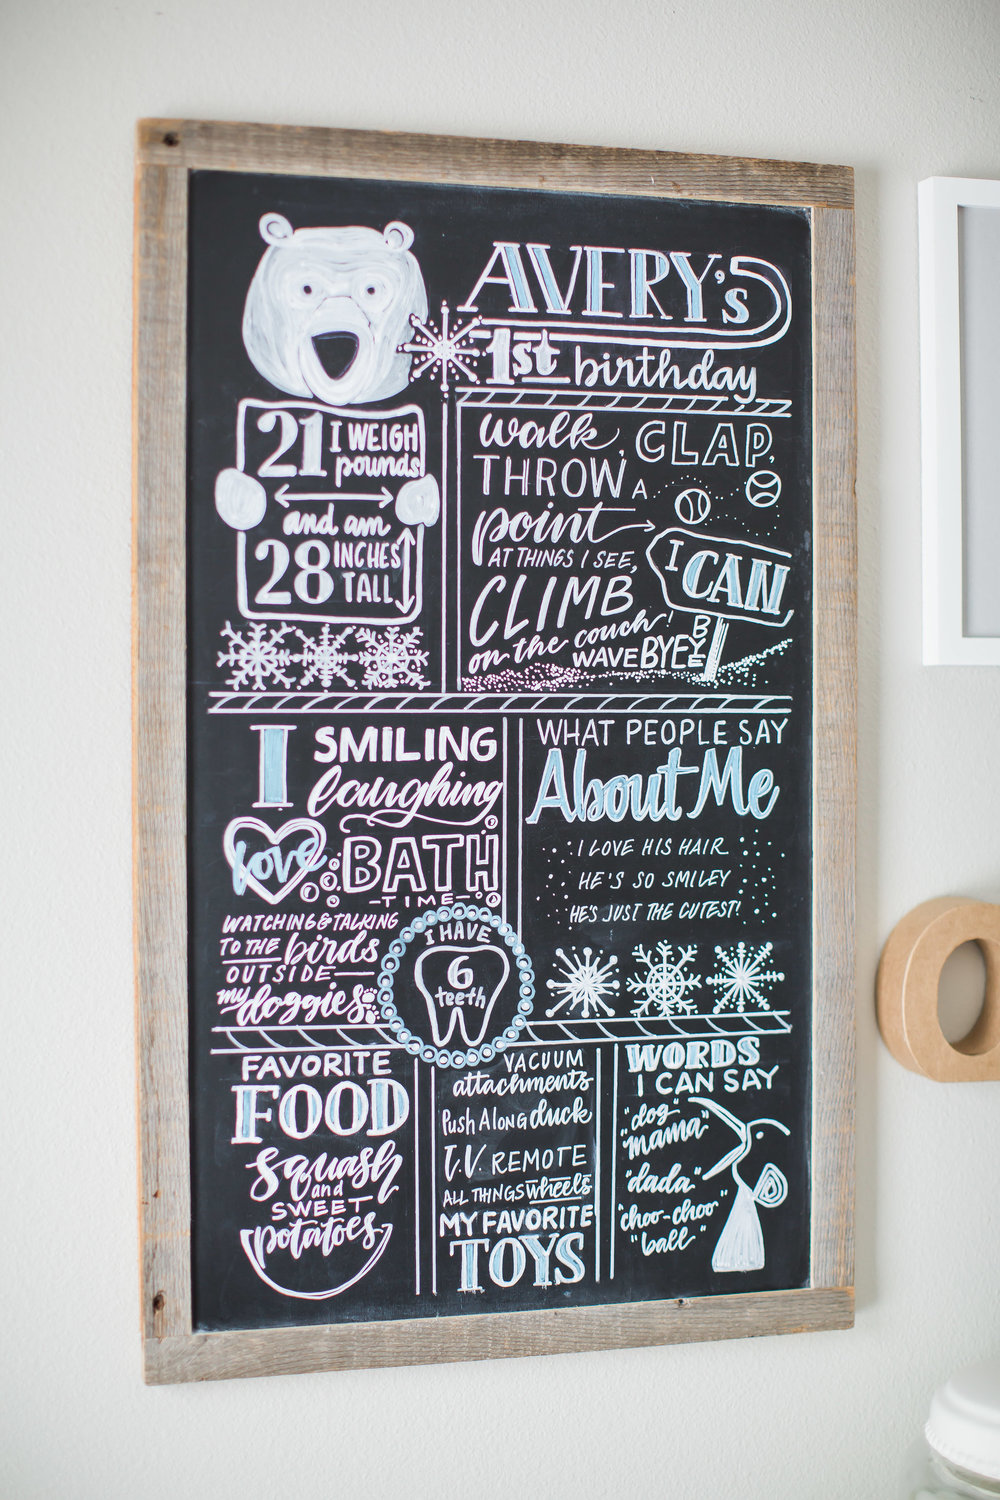 AVERY's
1st birthday
21 I WEIGH
pounds
and am
28 INCHES
TALL
walk, CLAP,
THROW A
point
AT THINGS I SEE,
CLIMB
on the couch!
WAVE BYE BYE
I CAN
I SMILING
laughing
love BATH
-TIME-
WATCHING & TALKING
TO THE birds
OUTSIDE
my doggies
I HAVE
6
teeth
WHAT PEOPLE SAY
About Me
I LOVE HIS HAIR
HE'S SO SMILEY
HE'S JUST THE CUTEST!
FAVORITE
FOOD
squash
and
SWEET
potatoes
VACUUM
attachments
Push Along duck
T.V. REMOTE
ALL THINGS wheels
MY FAVORITE
TOYS
WORDS
I CAN SAY
"dog"
"mama"
"dada"
"choo-choo"
"ball"